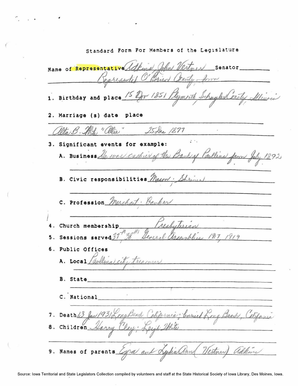 Standard Form For Members of the Legislature
Name of Representative Adkins, John Vertow Senator
Represented O'Brien County, Iowa
1. Birthday and place 15 Nov 1851 Plymouth County, Illinois
2. Marriage (s) date place
"Allie" 25 Dec 1877
3. Significant events for example:
A. Business He was cashier of the Bank of Paullina from July 1892
B. Civic responsibilities Mason; Shriner
C. Profession Merchant; Banker
4. Church membership Presbyterian
5. Sessions served 37th, 38th General Assemblies 1917, 1919
6. Public Offices
A. Local Paullina city treasurer
B. State
C. National
7. Death 1931 Long Beach California; buried Long Beach, California
8. Children Harry Clay; Loyd
9. Names of parents Ezra and Adkins
Source: Iowa Territorial and State Legislators Collection compiled by volunteers and staff at the State Historical Society of Iowa Library, Des Moines, Iowa.